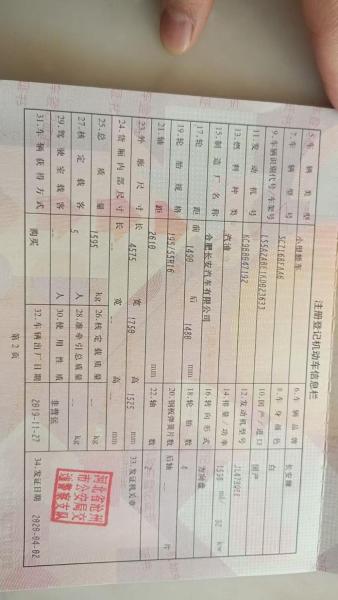 注册登记机动车信息栏
5.车辆类型 小型轿车 6.车辆品牌 长安牌
7.车辆型号 8.车身颜色 白
9.车辆识别代号/车架号 10.国产/进口 国产
11.发动机号 12.发动机型号
13.燃料种类 汽油 14.排量/功率 ml/ kw
15.制造厂名称 合肥长安汽车有限公司 16.转向形式 方向盘
17.轮距 前 1490 后 1480 mm 18.轮胎数 4
19.轮胎规格 195/55R16 20.钢板弹簧片数 后轴 -- 片
21.轴距 2610 mm 22.轴数 2
23.外廓尺寸 长 4575 宽 1750 高 1525 mm 33.发证机关章
24.货厢内部尺寸 长 宽 高 mm
25.总质量 1595 kg 26.核定载质量 kg
27.核定载客 5 人 28.准牵引总质量 kg
29.驾驶室载客 人 30.使用性质 非营运
31.车辆获得方式 购买 32.车辆出厂日期 2019-11-27 34.发证日期 2020-04-02
河北省沧州
市公安局交
通警察支队
第2页